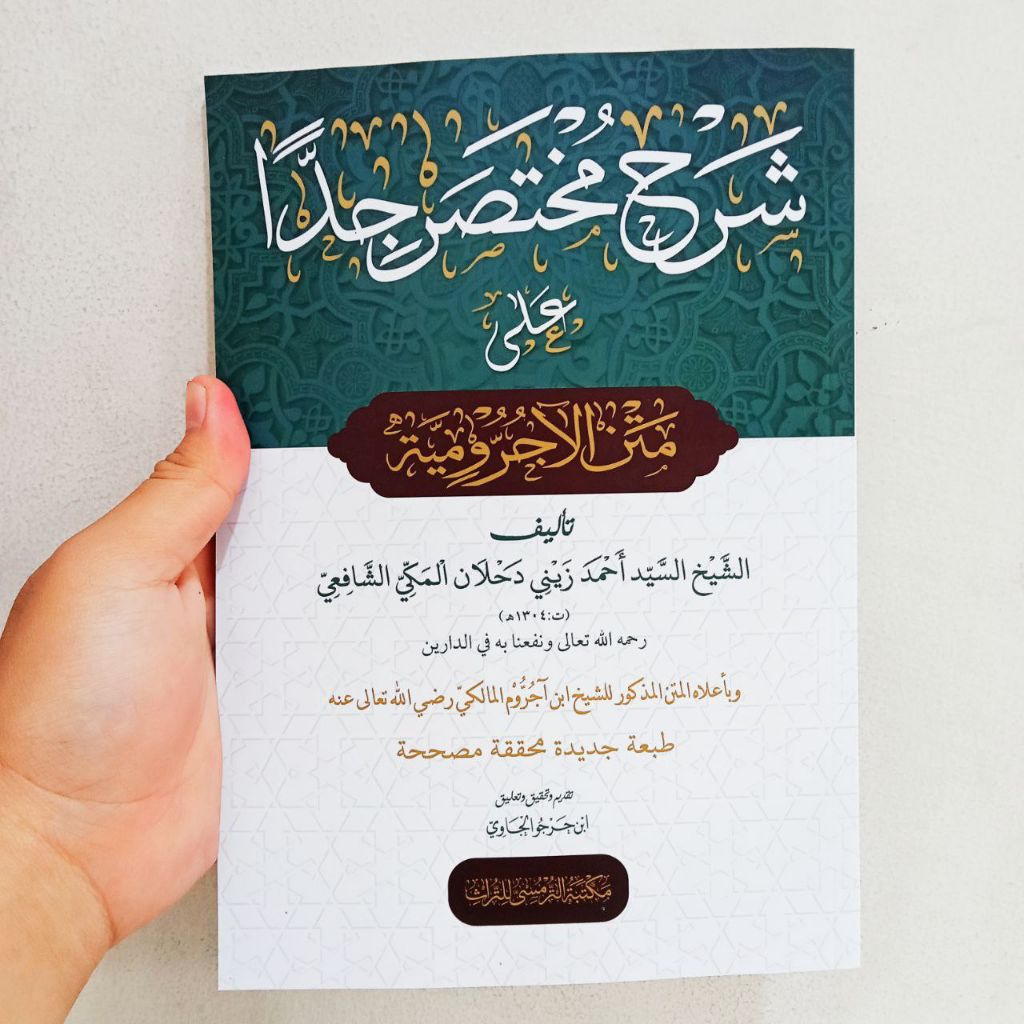 شَرْح مُخْتَصَر جِدًّا
عَلى
مَتْن الآجُرُّومِيَّة
تأليف
الشَّيْخ السَّيِّد أَحْمَدَ زَيْنِي دَحْلَان الْمَكِّيّ الشَّافِعِيّ
(ت:١٣٠٤ھ)
رحمه الله تعالى ونفعنا به في الدارين
وبأعلاه المتن المذكور للشيخ ابن آجُرُّوْم المالكيّ رضي الله تعالى عنه
طبعة جديدة محققة مصححة
تقديم وتحقيق وتعليق
ابن حَرْجُو الْجَاوِيّ
مَكْتَبَةُ التُّرْمُسِي لِلتُّرَاثِ